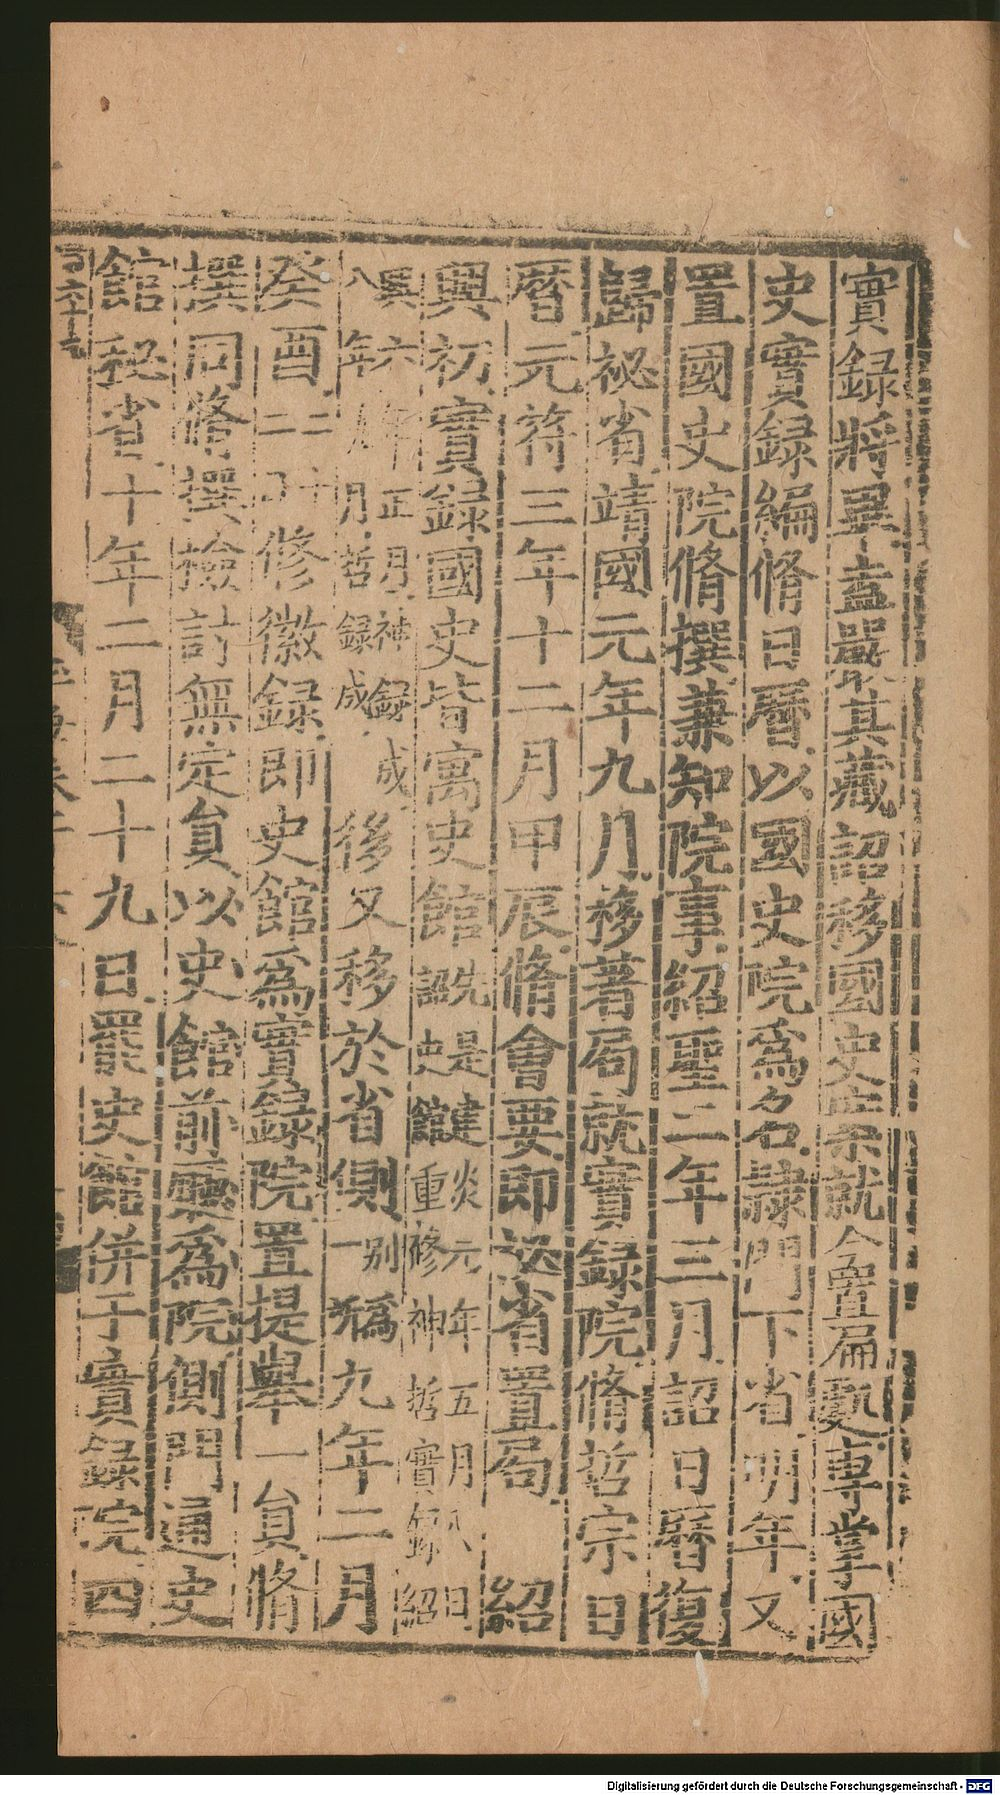 實録將畢盖嚴其藏詔移國史案就今置扁專堂國
史實録編脩日曆以國史院爲名隷門下省明年又
置國史院脩撰兼知院事紹聖二年三月詔日曆復
歸祕省靖國元年九月移著局就實録院脩哲宗日
曆元符三年十二月甲辰脩會要即祕省置局 紹
興初實録國史皆寓史館先是建炎元年五月八日
詔史館重修神哲實録紹
興六年正月神録成
八年九月哲録成後又移於省側别
一稱九年二月
癸酉二十
二日修徽録即史館爲實録院置提舉一貟脩
撰同脩撰檢討無定貟以史館前廳爲院側門通史
館秘省十年二月二十九日罷史館併于實録院四
Digitalisierung gefördert durch die Deutsche Forschungsgemeinschaft - DFG